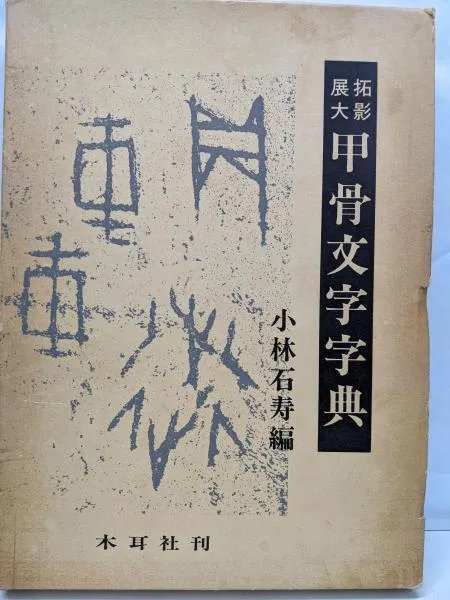 拓影
展大
甲骨文字字典
小林石寿編
木耳社刊